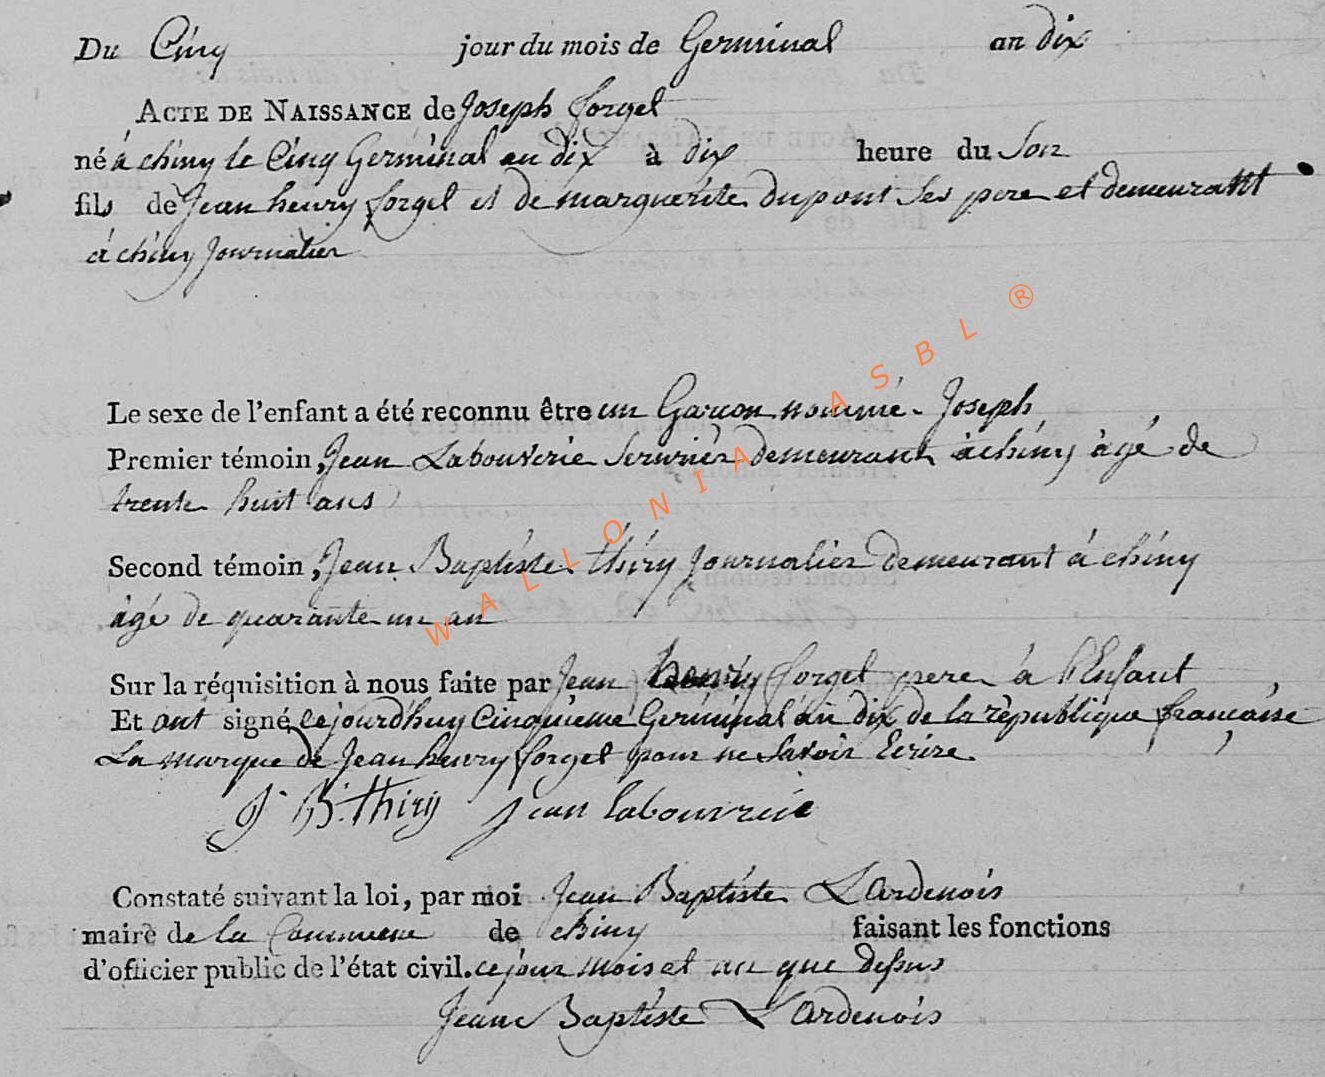 Du Cinq jour du mois de Germinal an dix
ACTE DE NAISSANCE de Joseph forgel
né à chiny le Cinq Germinal an dix à dix heure du Soir
fils de Jean henry forgel et de marguerite dupont Ses pere et demeurant
á chiny Journalier
Le sexe de l'enfant a été reconnu être un Garcon nommé Joseph
Premier témoin, Jean Labouverie Serurier demeurant à chiny àgé de
trente huit ans
Second témoin, Jean Baptiste thiry Journalier demeurant á chiny
àgé de quarante un an
Sur la réquisition à nous faite par Jean henriy forgel pere à l'Enfant
Et ont signé, cejourdhuy Cinquieme Germinal an dix de la rèpublique francaise
La marque de Jean henry forgel pour ne Savoir Ecrire
J B. thiry Jean labouvrie
Constaté suivant la loi, par moi Jean Baptiste Lardenois
maire de la Commune de chiny faisant les fonctions
d'officier public de l'état civil. ce jour mois et an que dessus
Jean Baptiste Lardenois
WALLONIA ASBL ®